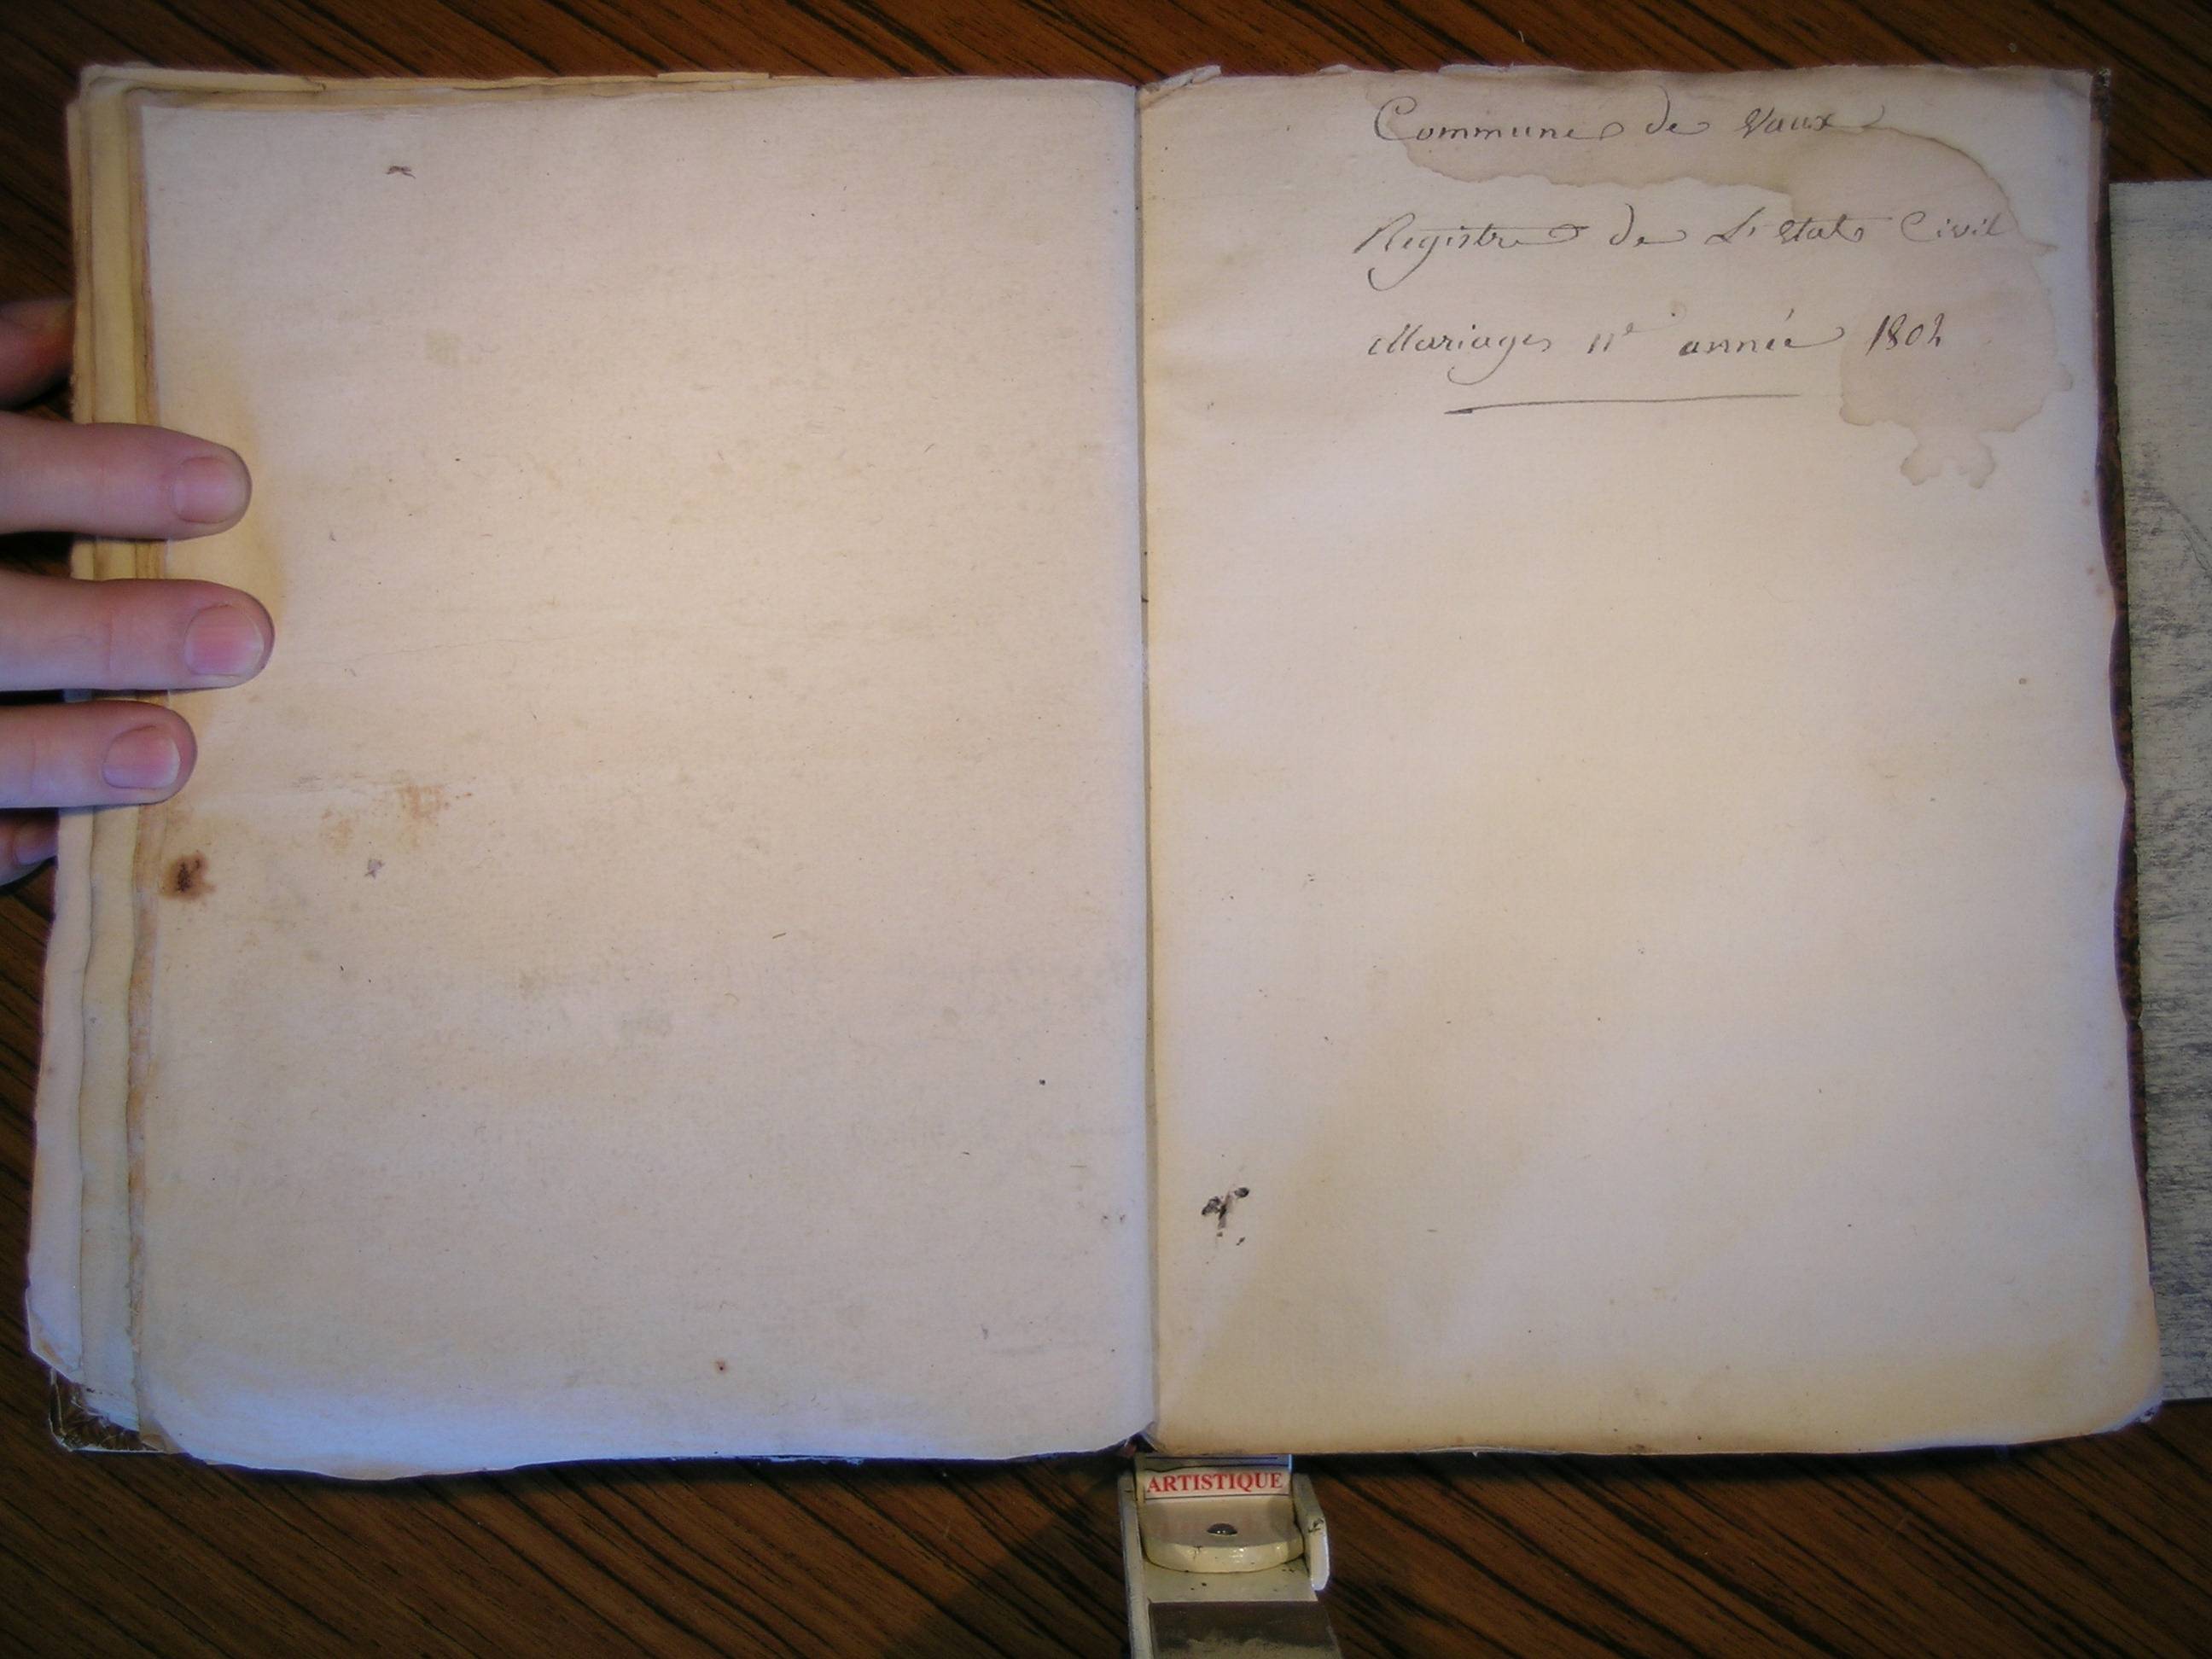 Commune de Vaux
Registre de L'Etat Civil
Mariages 11e année 1802
ARTISTIQUE